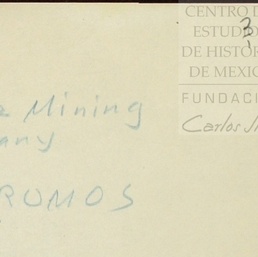 CENTRO D
ESTUDIO
DE HISTOR
DE MEXIC
FUNDACI
Carlos
Mining
any
ROMOS